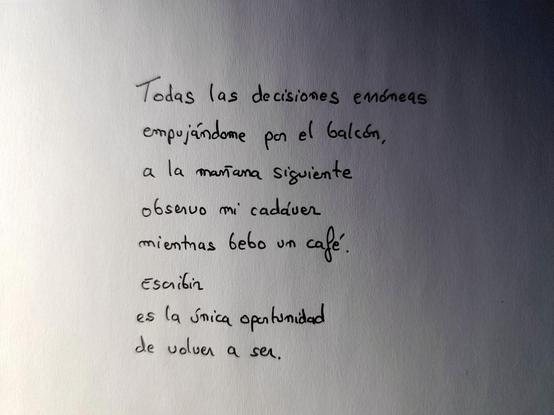 Todas las decisiones erróneas
empujándome por el balcón,
a la mañana siguiente
observo mi cadáver
mientras bebo un café.
Escribir
es la única oportunidad
de volver a ser.